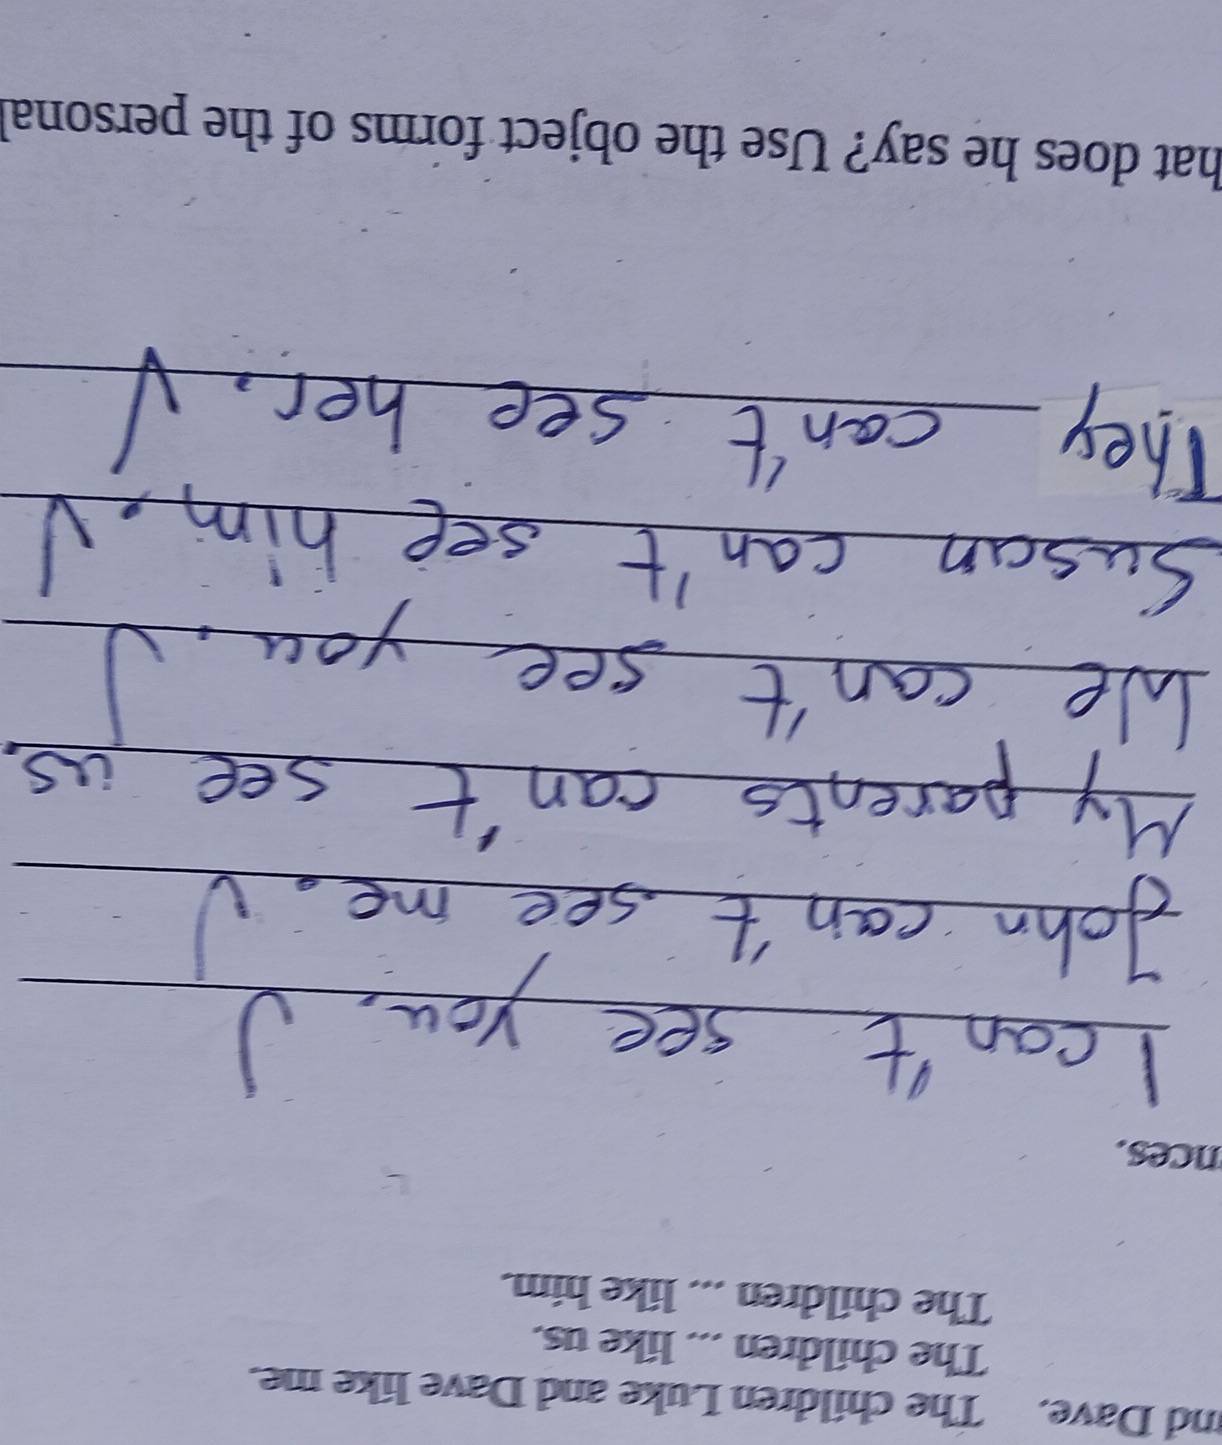 nd Dave. The children Luke and Dave like me.
The children ... like us.
The children ... like him.
nces.
I can't see you.
John can't see me.
My parents can't see us.
We can't see you.
Susan can't see him.
They can't see her.
hat does he say? Use the object forms of the personal